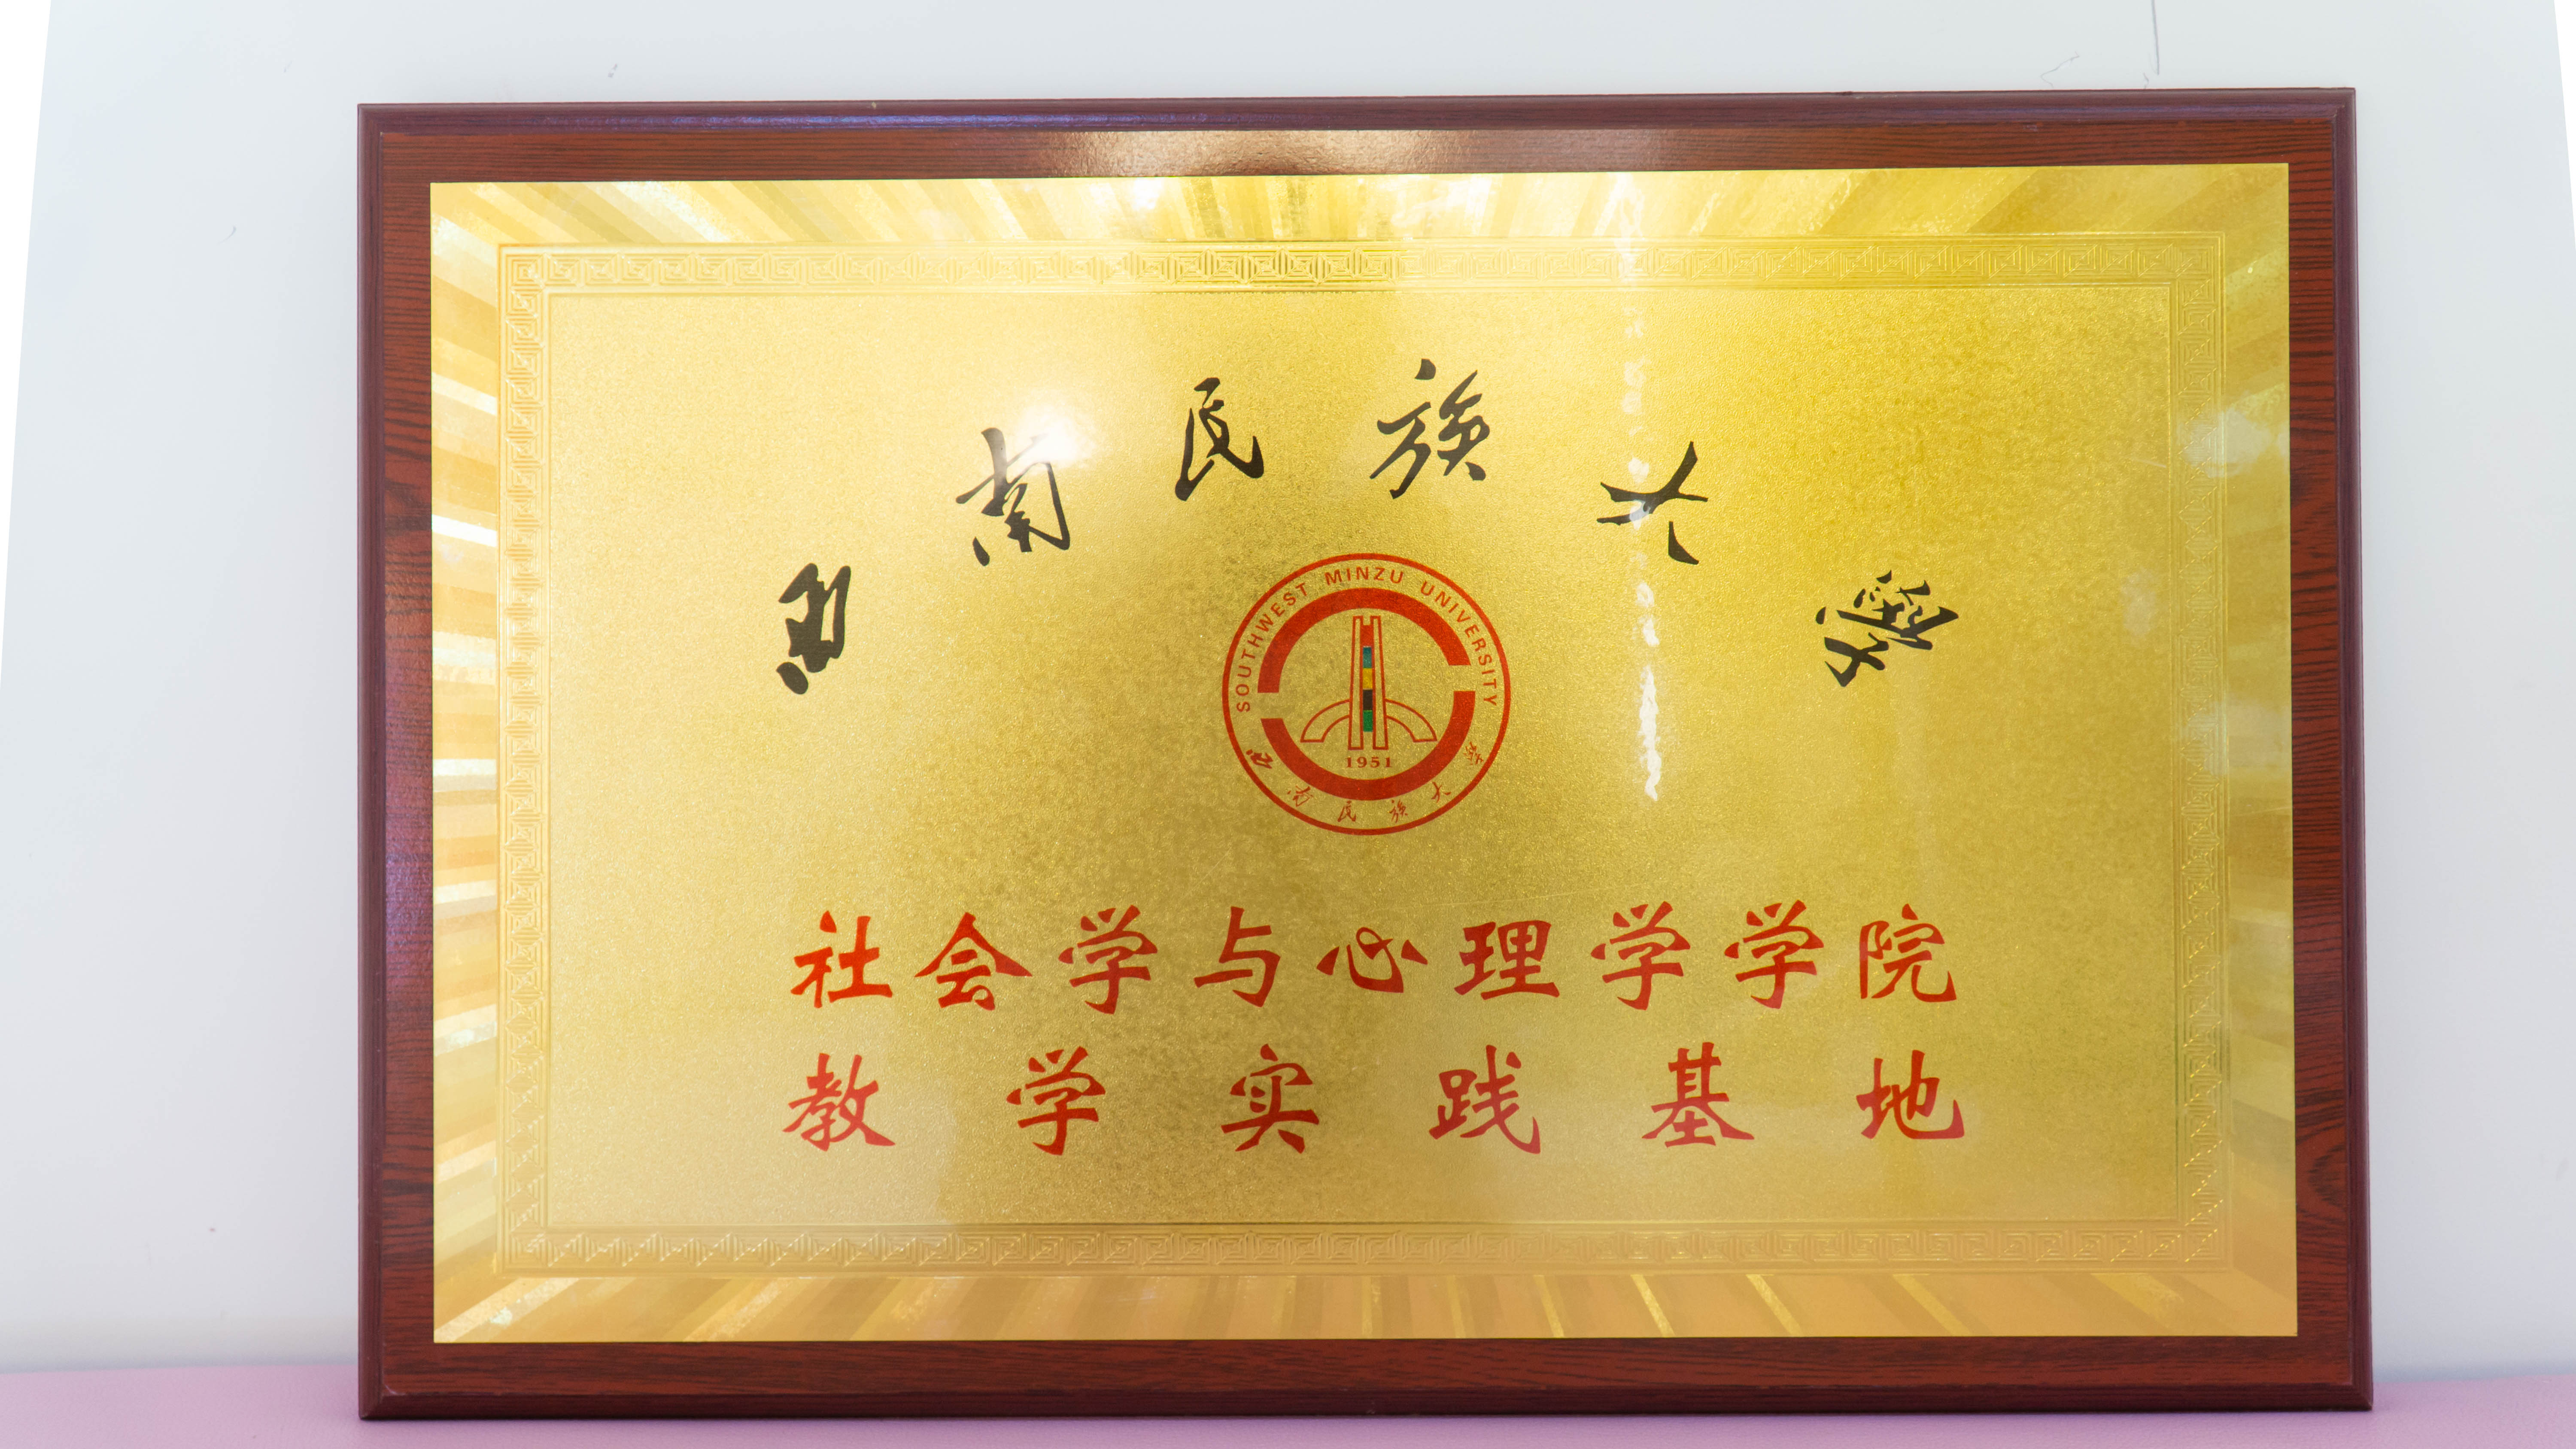 西南民族大學
SOUTHWEST MINZU UNIVERSITY
1951
西南民族大学
社会学与心理学学院
教学实践基地